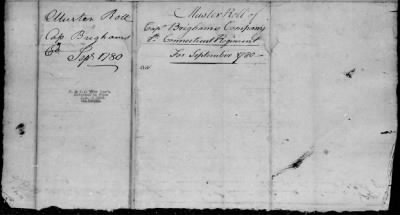 Muster Roll
of
Cap Brighams
Co
Sept 1780
Muster Roll of
Capt Brighams Company
8th Connecticut Regiment
For September 1780